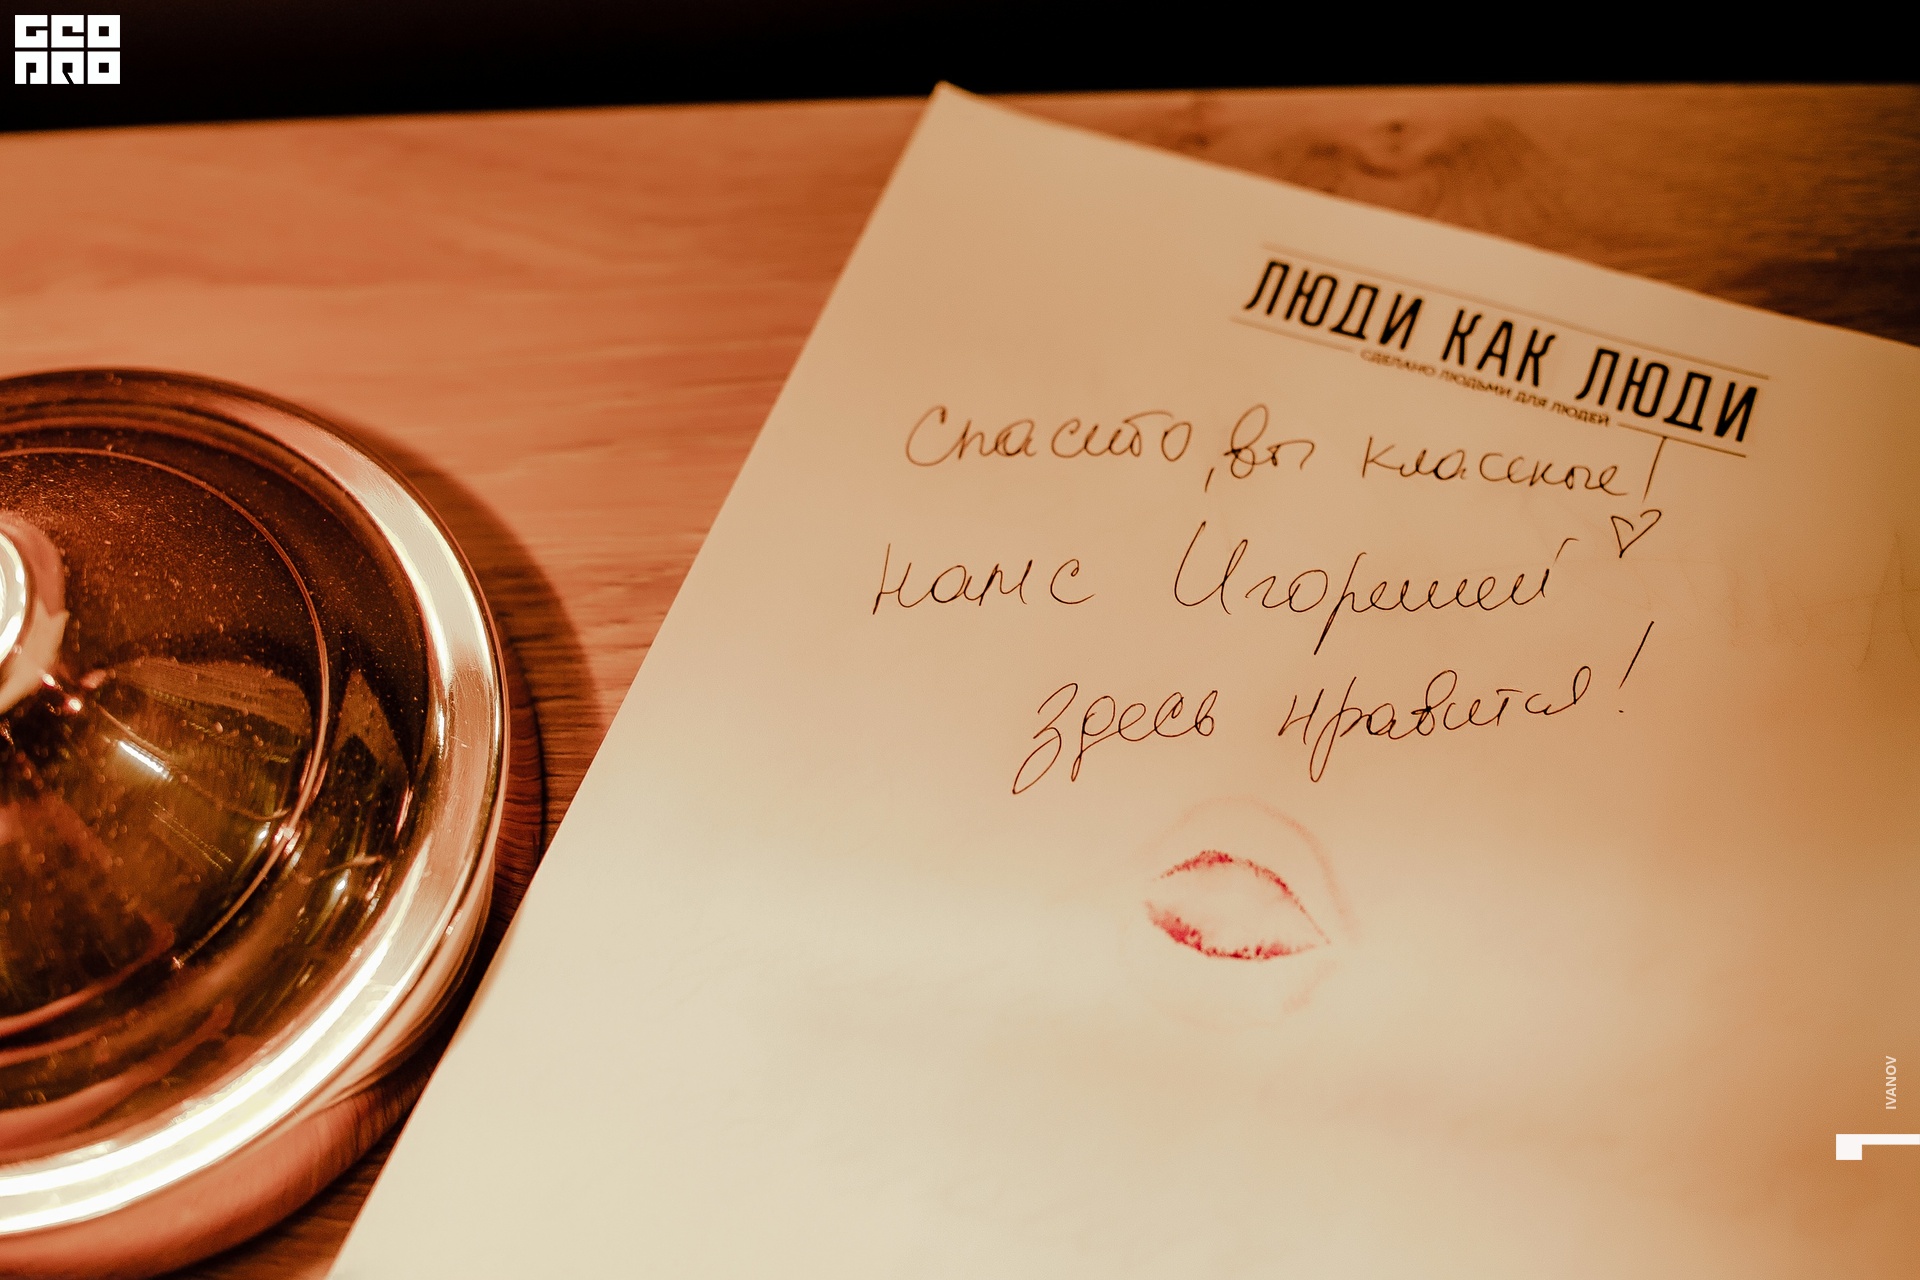 GEO
PRO
ЛЮДИ КАК ЛЮДИ
СДЕЛАНО ЛЮДЬМИ ДЛЯ ЛЮДЕЙ
Спасибо, вы классные!
нам с Игорешей
здесь нравится!
IVANOV